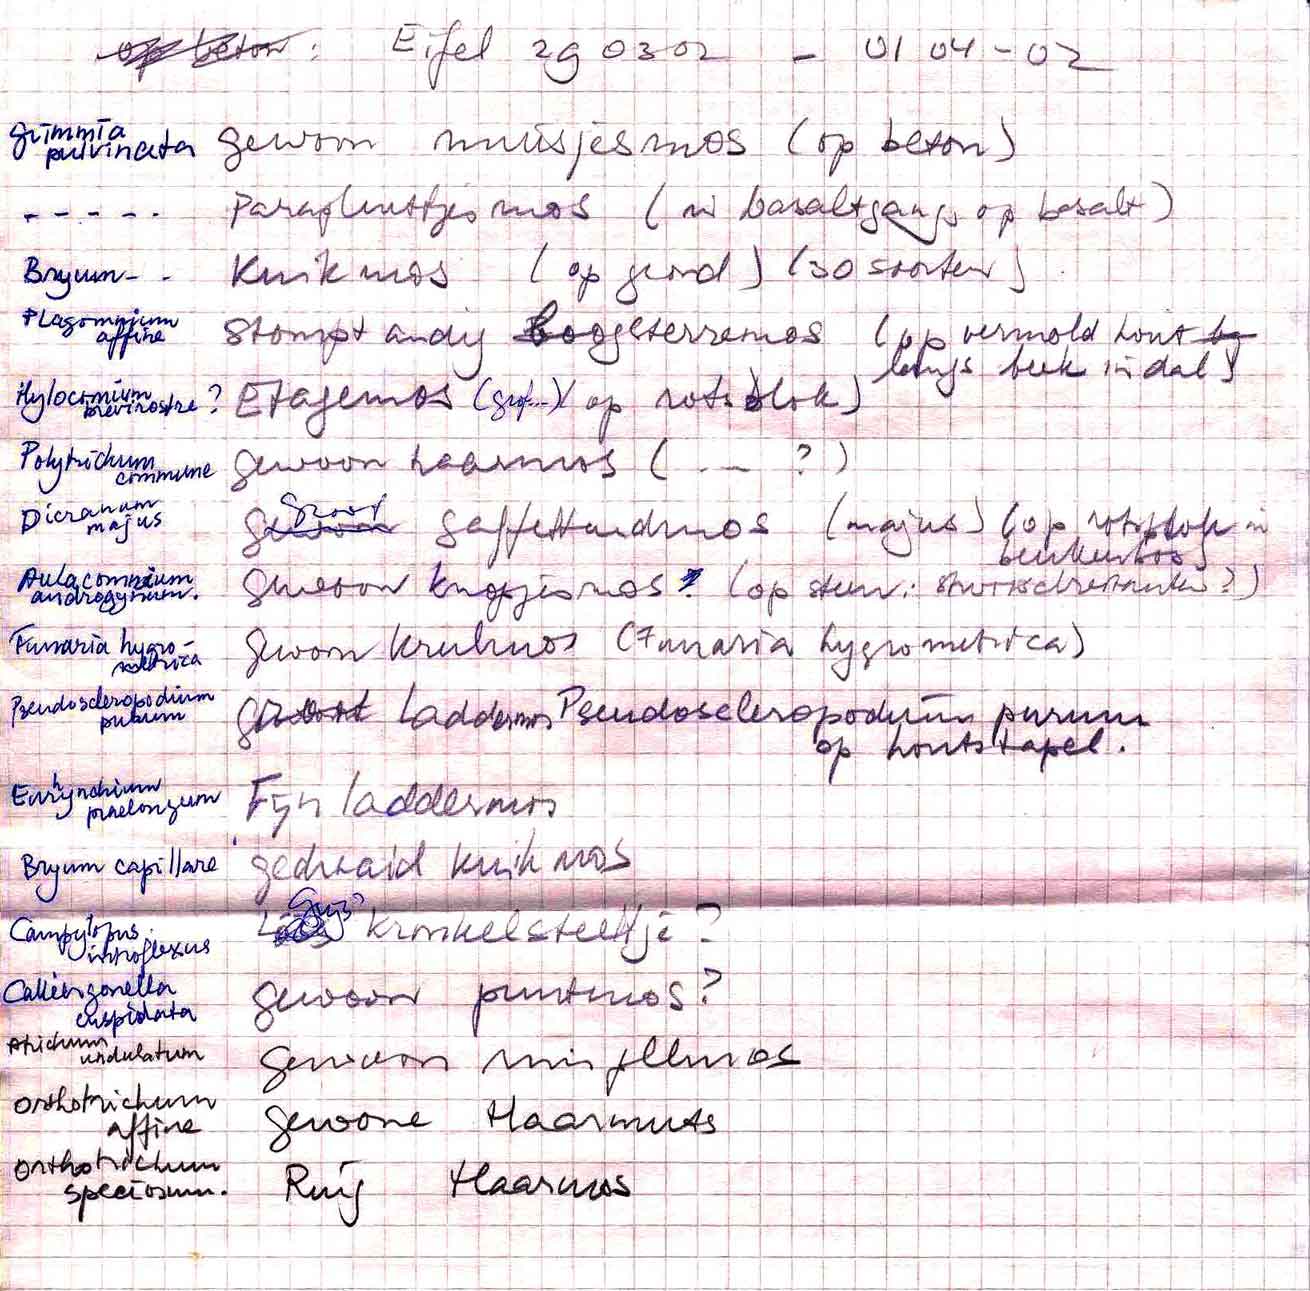 op beton: Eifel 29 03 02 - 01 04-02
Grimmia pulvinata gewoon muisjesmos (op beton)
- - - - - Parapluutjesmos (in basaltgang, op basalt)
Bryum - - Knikmos (op grond) (30 soorten)
Plagomnium affine Stompt andig boogsterremos (op vermold hout
langs beek in dal)
Hylocomium brevirostre? Etagemos (op rotsblok)
Polytrichum commune gewoon haarmos (. — ?)
Dicranum majus gewoon Groot gaffeltandmos (majus) (op rotsblok in
beukenbos)
Aulacomnium androgynum. gewoon knopjesmos? (op steen:
Funaria hygrometrica gewoon krulmos (Funaria hygrometrica)
Pseudoscleropodium purum groot laddermos Pseudoscleropodium purum
op houtstapel.
Eurhynchium praelongum Fijn laddermos
Bryum capillare gedraaid knikmos
Campylopus introflexus Grijs? kronkelsteeltje?
Calliergonella cuspidata gewoon puntmos?
Atrichum undulatum gewoon
Orthotrichum affine gewone Haarmuts
Orthotrichum speciosum. Ruig Haarmos